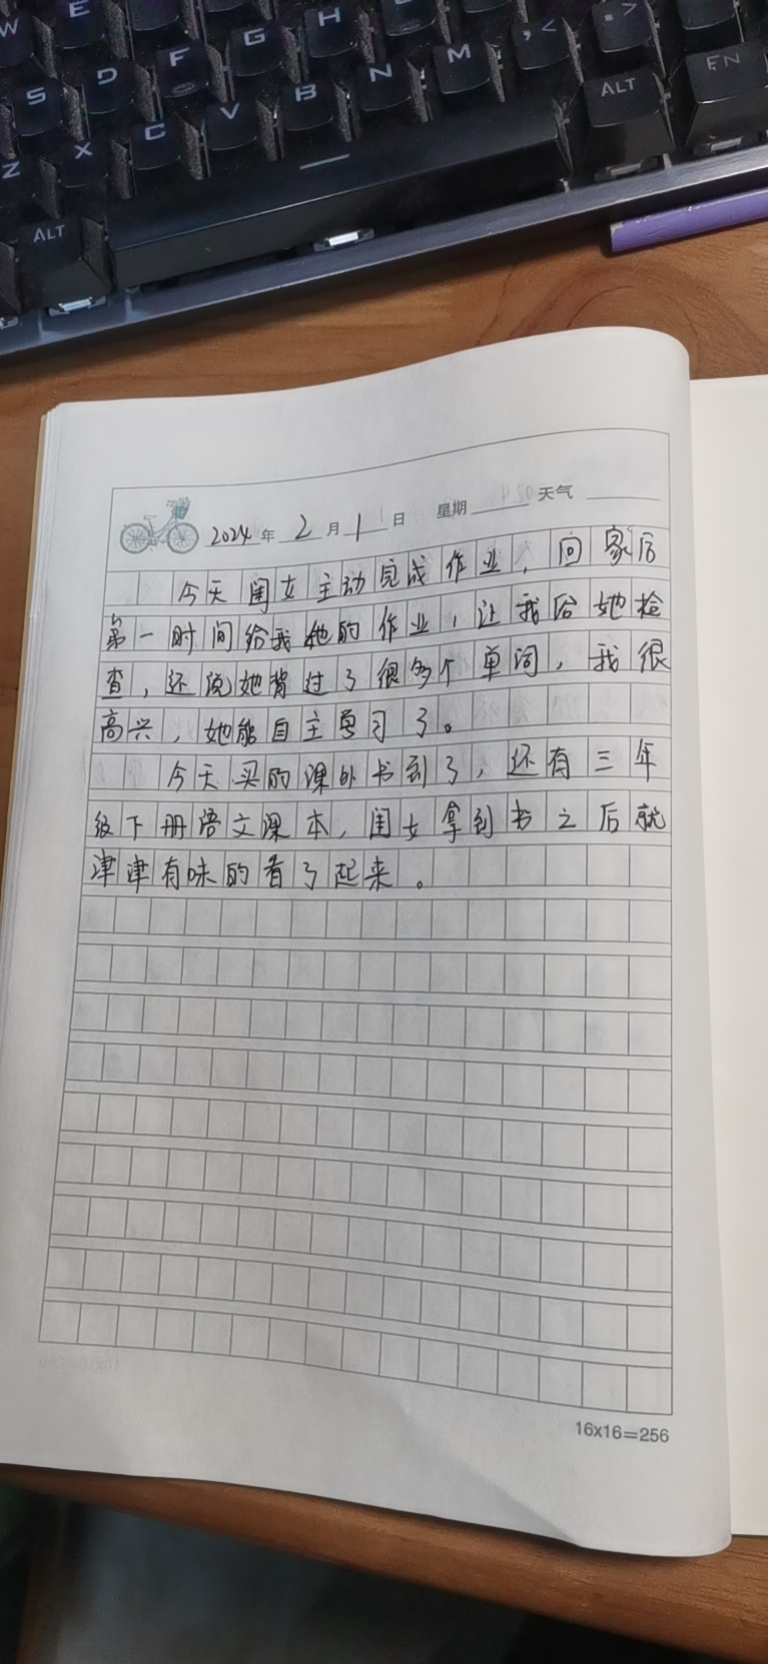 W E
S D F G H
Z X C V B N M , < . >
ALT ALT EN
2024 年 2 月 1 日 星期 天气
今天闺女主动完成作业，回家后
第一时间给我她的作业，让我给她检
查，还说她背过了很多个单词，我很
高兴，她能自主学习了。
今天买的课外书到了，还有三年
级下册语文课本，闺女拿到书之后就
津津有味的看了起来。
16x16=256